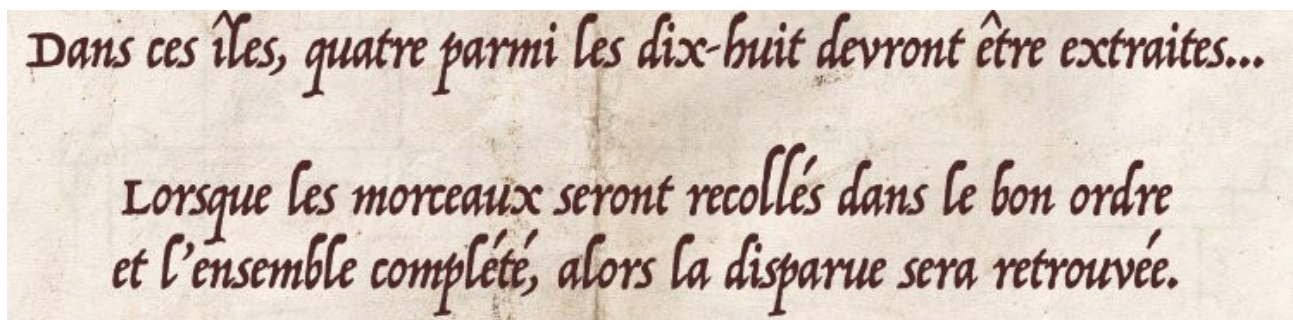 Dans ces îles, quatre parmi les dix-huit devront être extraites...
Lorsque les morceaux seront recollés dans le bon ordre
et l'ensemble complété, alors la disparue sera retrouvée.